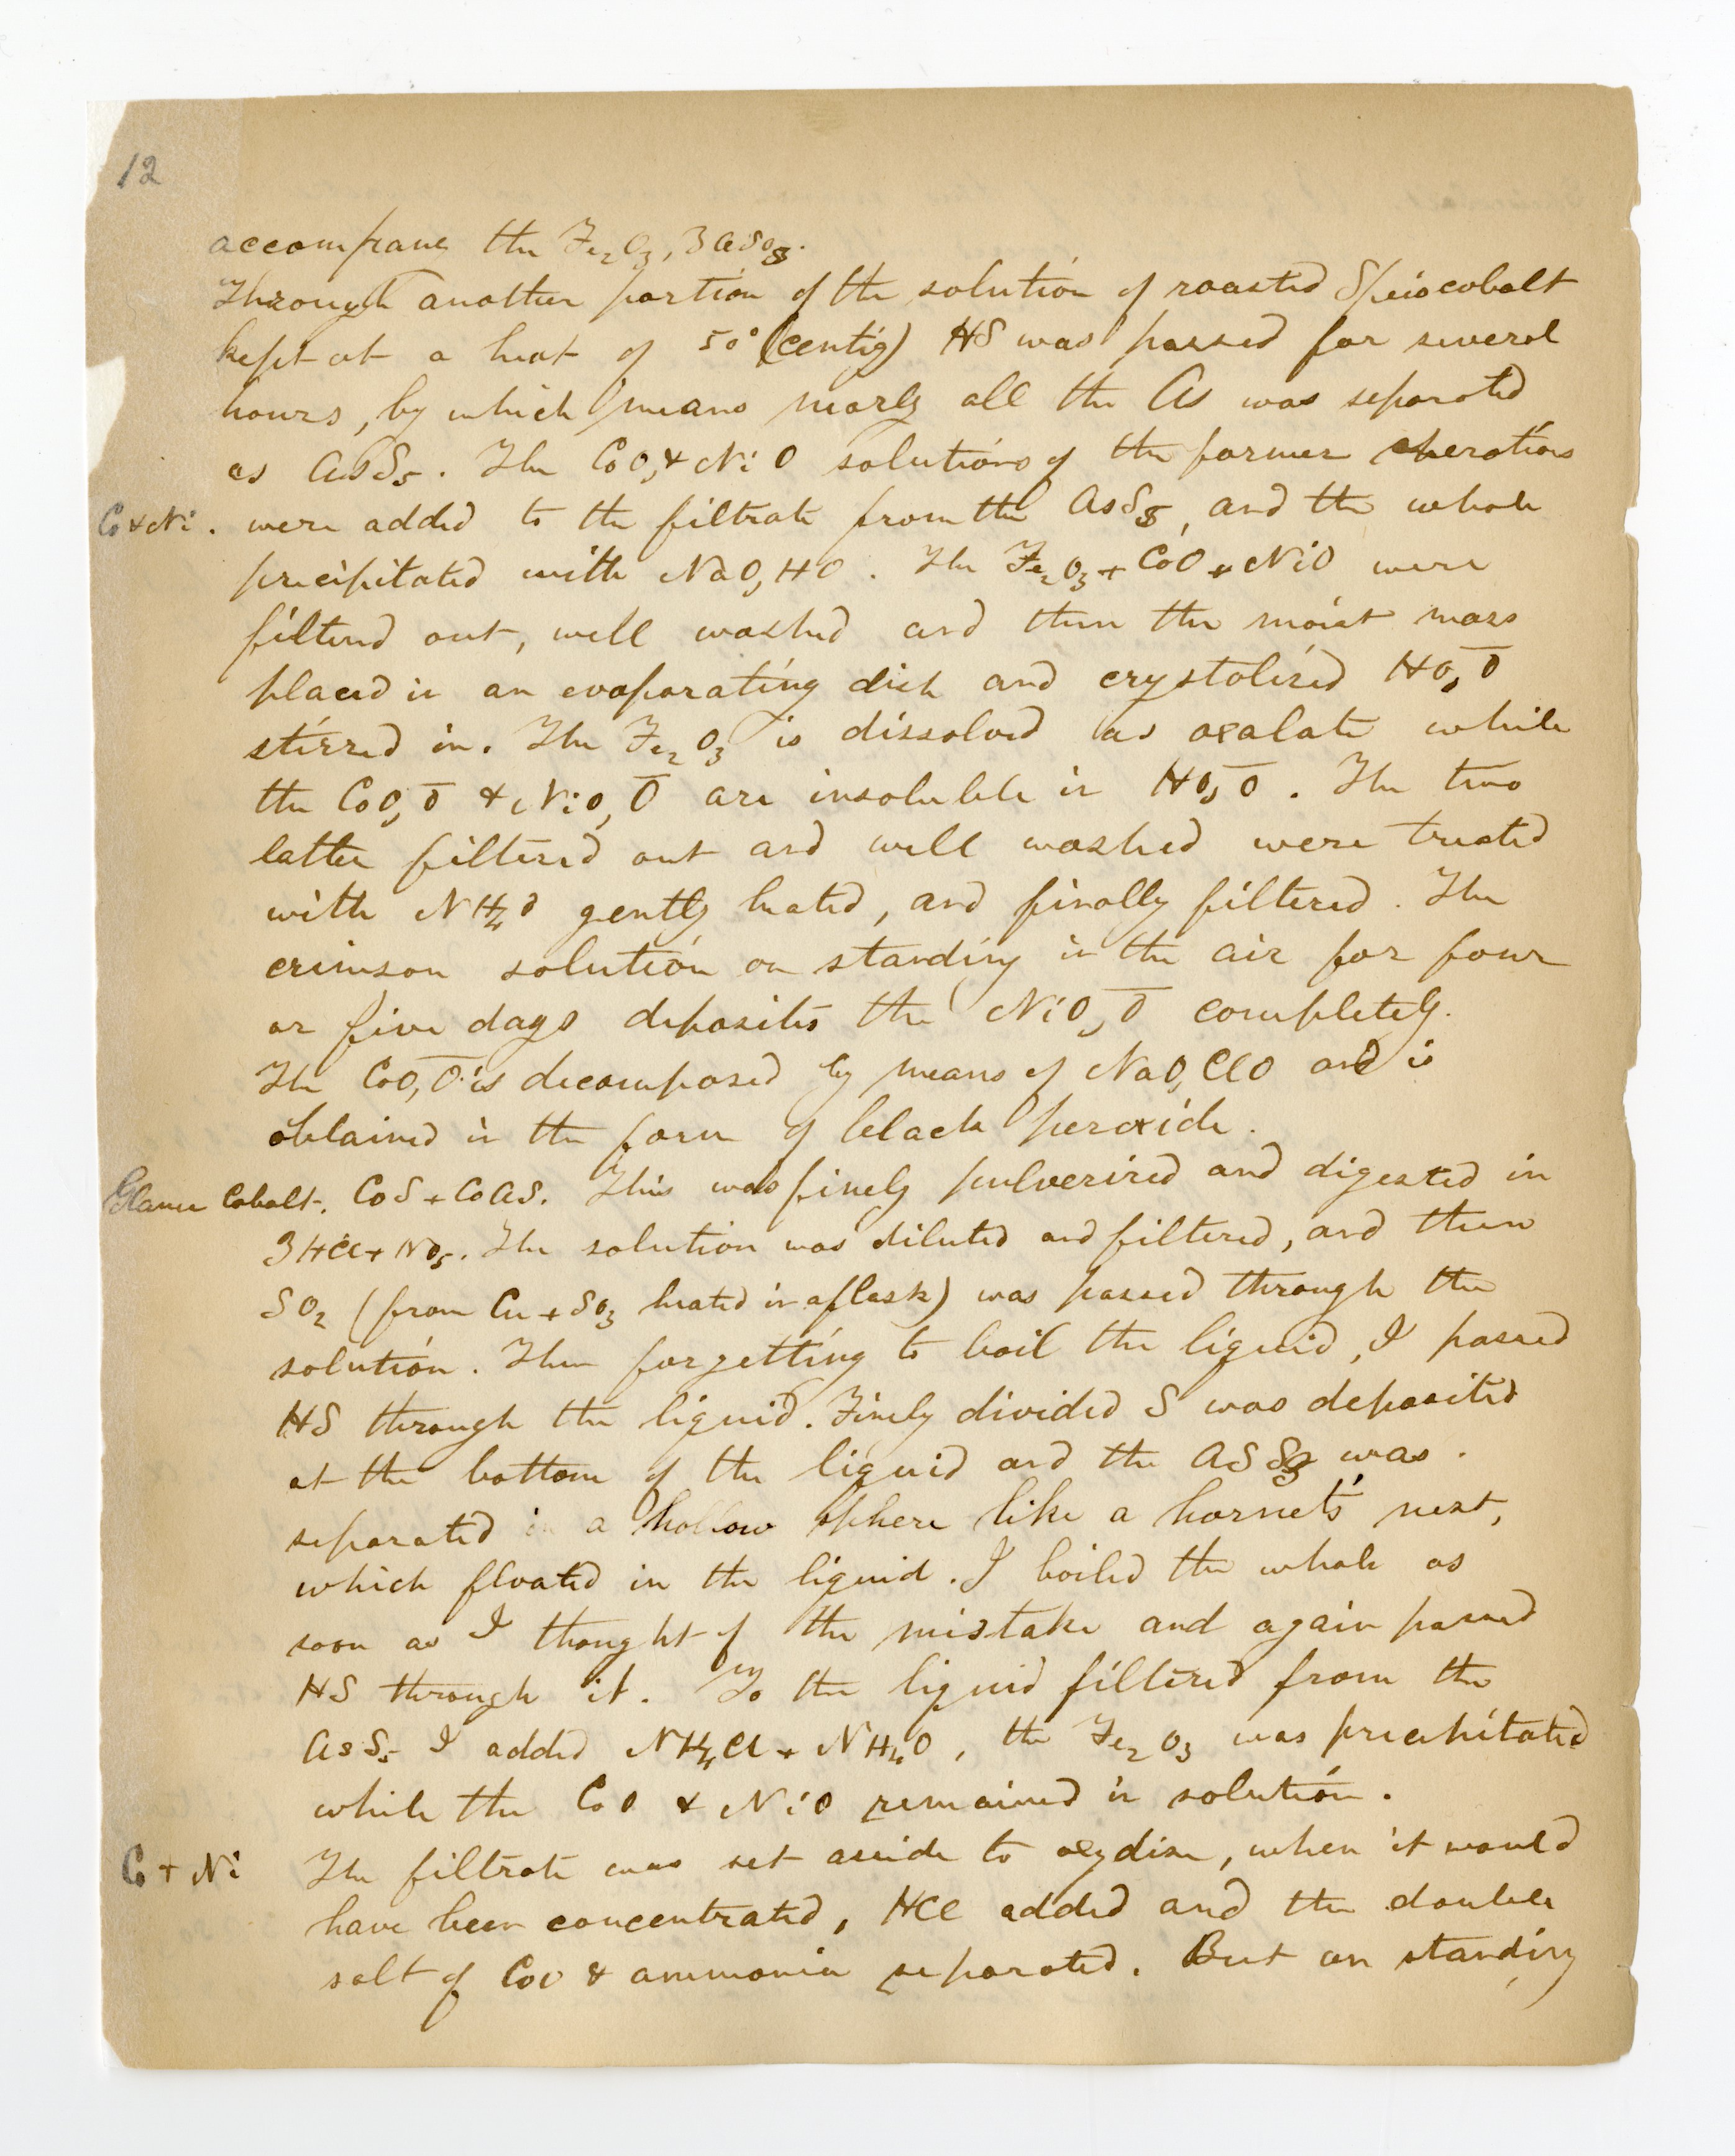 12
accompany the Fe₂O₃, 3AsO₅.
Through another portion of the solution of roasted Speiscobalt
kept at a heat of 50° (centig) HS was passed for several
hours, by which means nearly all the As was separated
as AsS₅. The CoO, & NiO solutions of the former operations
Co & Ni. were added to the filtrate from the AsS₅, and the whole
precipitated with NaO,HO. The Fe₂O₃ + CoO + NiO were
filterd out, well washed and then the moist mass
placed in an evaporating dish and crystolized HO,O̅
stirred in. The Fe₂O₃ is dissolved as oxalate while
the CoO,O̅ & NiO,O̅ are insoluble in HO,O̅. The two
latter filtered out and well washed were treated
with NH₄O gently heated, and finally filtered. The
crimson solution on standing in the air for four
or five days deposites the NiO,O̅ completely.
The CoO,O̅ is decomposed by means of NaO,ClO and is
obtained in the form of black peroxide.
Glance Cobalt. CoS + CoAs. This was finely pulverized and digested in
3HCl + NO₅. The solution was diluted and filtered, and then
SO₂ (from Cu + SO₃ heated in a flask) was passed through the
solution. Then forgetting to boil the liquid, I passed
HS through the liquid. Finely divided S was deposited
at the bottom of the liquid and the AsS₃ was.
separated in a hollow sphere like a hornet's nest,
which floated in the liquid. I boiled the whole as
soon as I thought of the mistake and again passed
HS through it. To the liquid filtered from the
AsS₅ I added NH₄Cl + NH₄O, the Fe₂O₃ was precipitated
while the CoO & NiO remained in solution.
Co + Ni The filtrate was set aside to oxydise, when it would
have been concentrated, HCl added and the double
salt of CoO & ammonia separated. But on standing